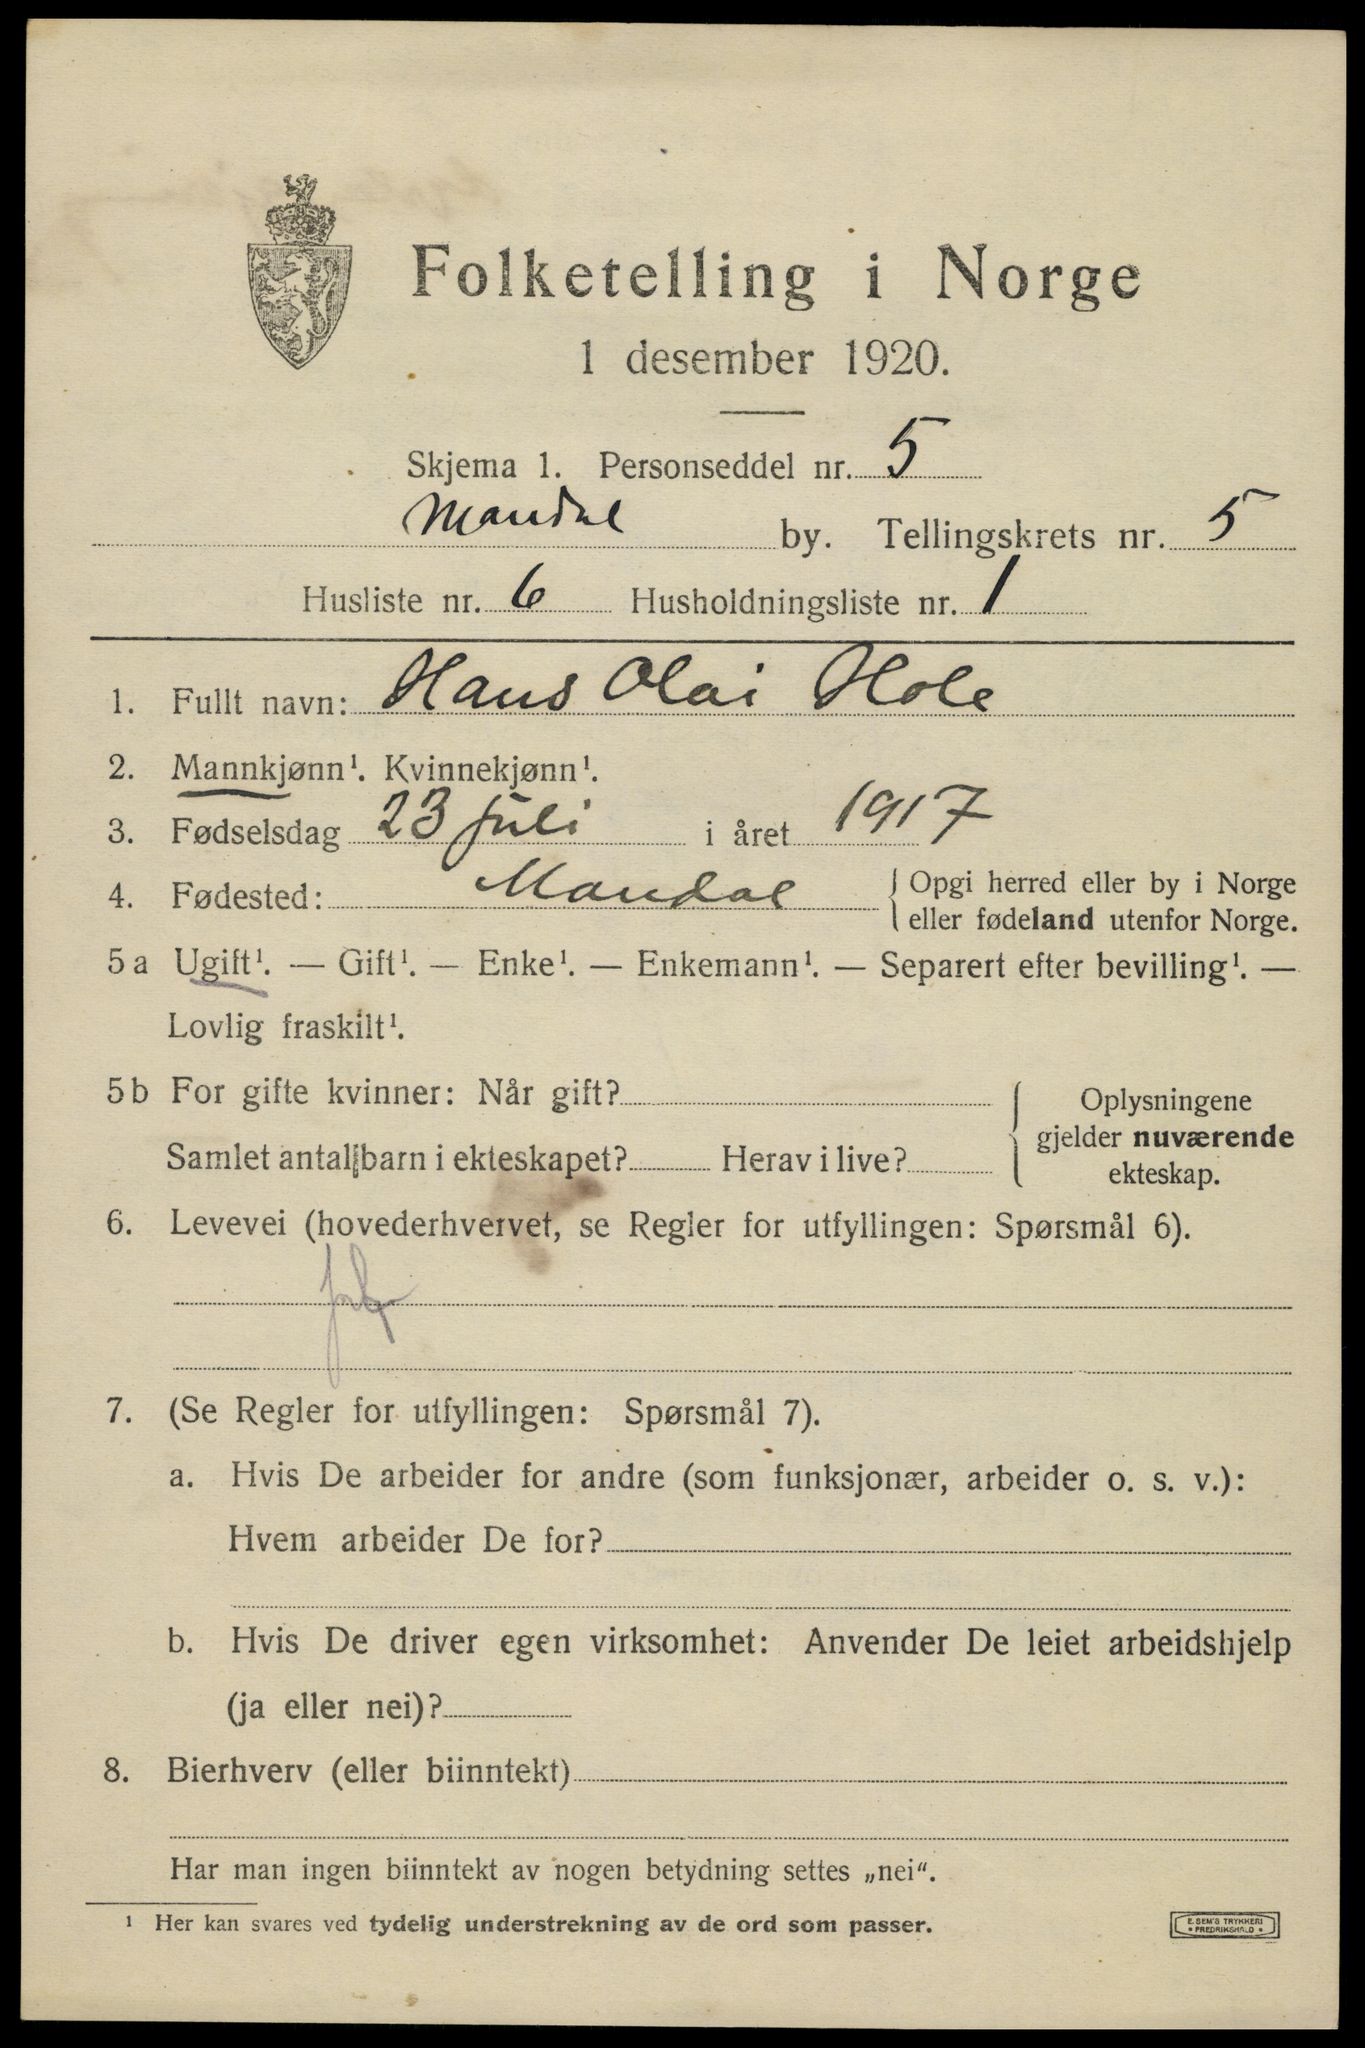 Folketelling i Norge
1 desember 1920.
Skjema 1. Personseddel nr. 5
Mandal by. Tellingskrets nr. 5
Husliste nr. 6 Husholdningsliste nr. 1
1. Fullt navn: Hans Olai Hole
2. Mannkjønn¹. Kvinnekjønn¹.
3. Fødselsdag 23 juli i året 1917
4. Fødested: Mandal { Opgi herred eller by i Norge
eller fødeland utenfor Norge.
5 a Ugift¹. — Gift¹. — Enke¹. — Enkemann¹. — Separert efter bevilling¹. —
Lovlig fraskilt¹.
5 b For gifte kvinner: Når gift?
Samlet antal barn i ekteskapet? Herav i live?
{ Oplysningene
gjelder nuværende
ekteskap.
6. Levevei (hovederhvervet, se Regler for utfyllingen: Spørsmål 6).
7. (Se Regler for utfyllingen: Spørsmål 7).
a. Hvis De arbeider for andre (som funksjonær, arbeider o. s. v.):
Hvem arbeider De for?
b. Hvis De driver egen virksomhet: Anvender De leiet arbeidshjelp
(ja eller nei)?
8. Bierhverv (eller biinntekt)
Har man ingen biinntekt av nogen betydning settes „nei“.
¹ Her kan svares ved tydelig understrekning av de ord som passer.
E. SEM'S TRYKKERI
• FREDRIKSHALD •